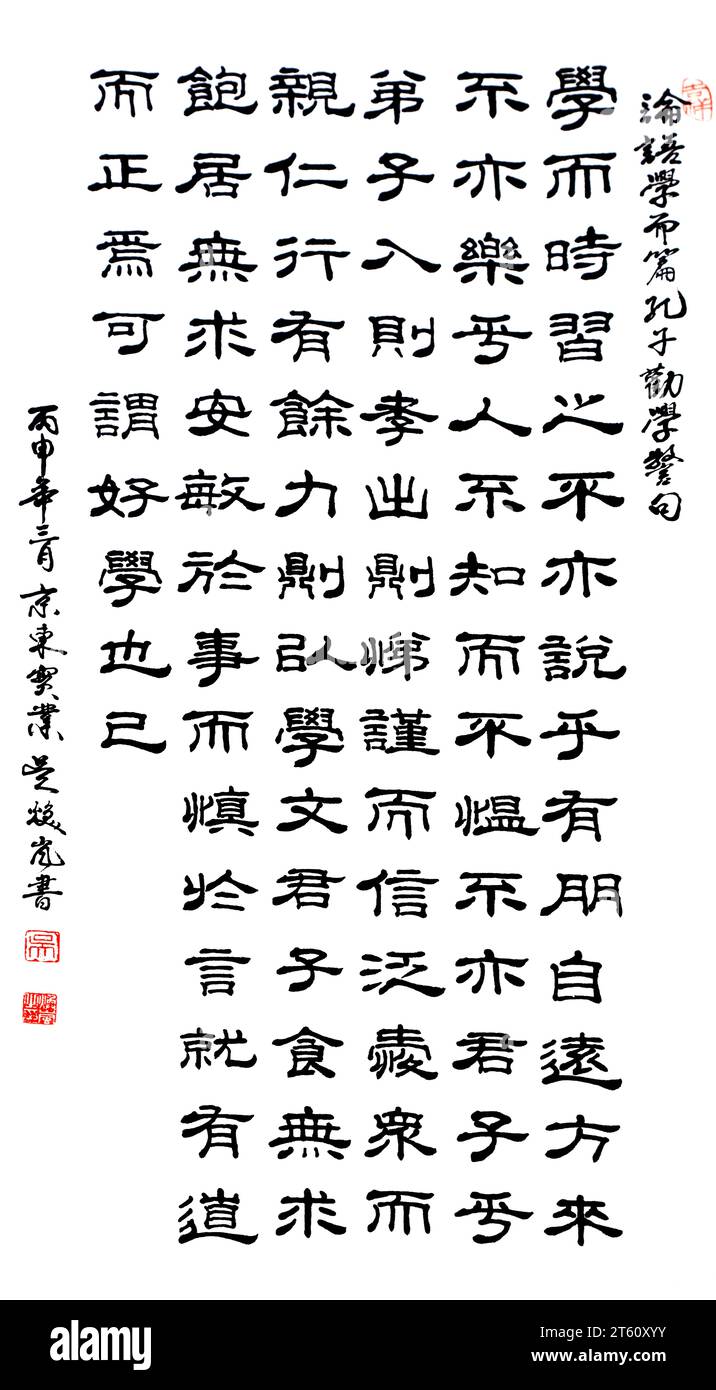 論語學而篇孔子勸學警句
學而時習之不亦說乎有朋自遠方來
不亦樂乎人不知而不慍不亦君子乎
弟子入則孝出則悌謹而信泛愛眾而
親仁行有餘力則以學文君子食無求
飽居無求安敏於事而慎於言就有道
而正焉可謂好學也已
丙申年三月京東實業吳煥嵐書
吳
alamy
Image ID: 2T60XYY
www.alamy.com